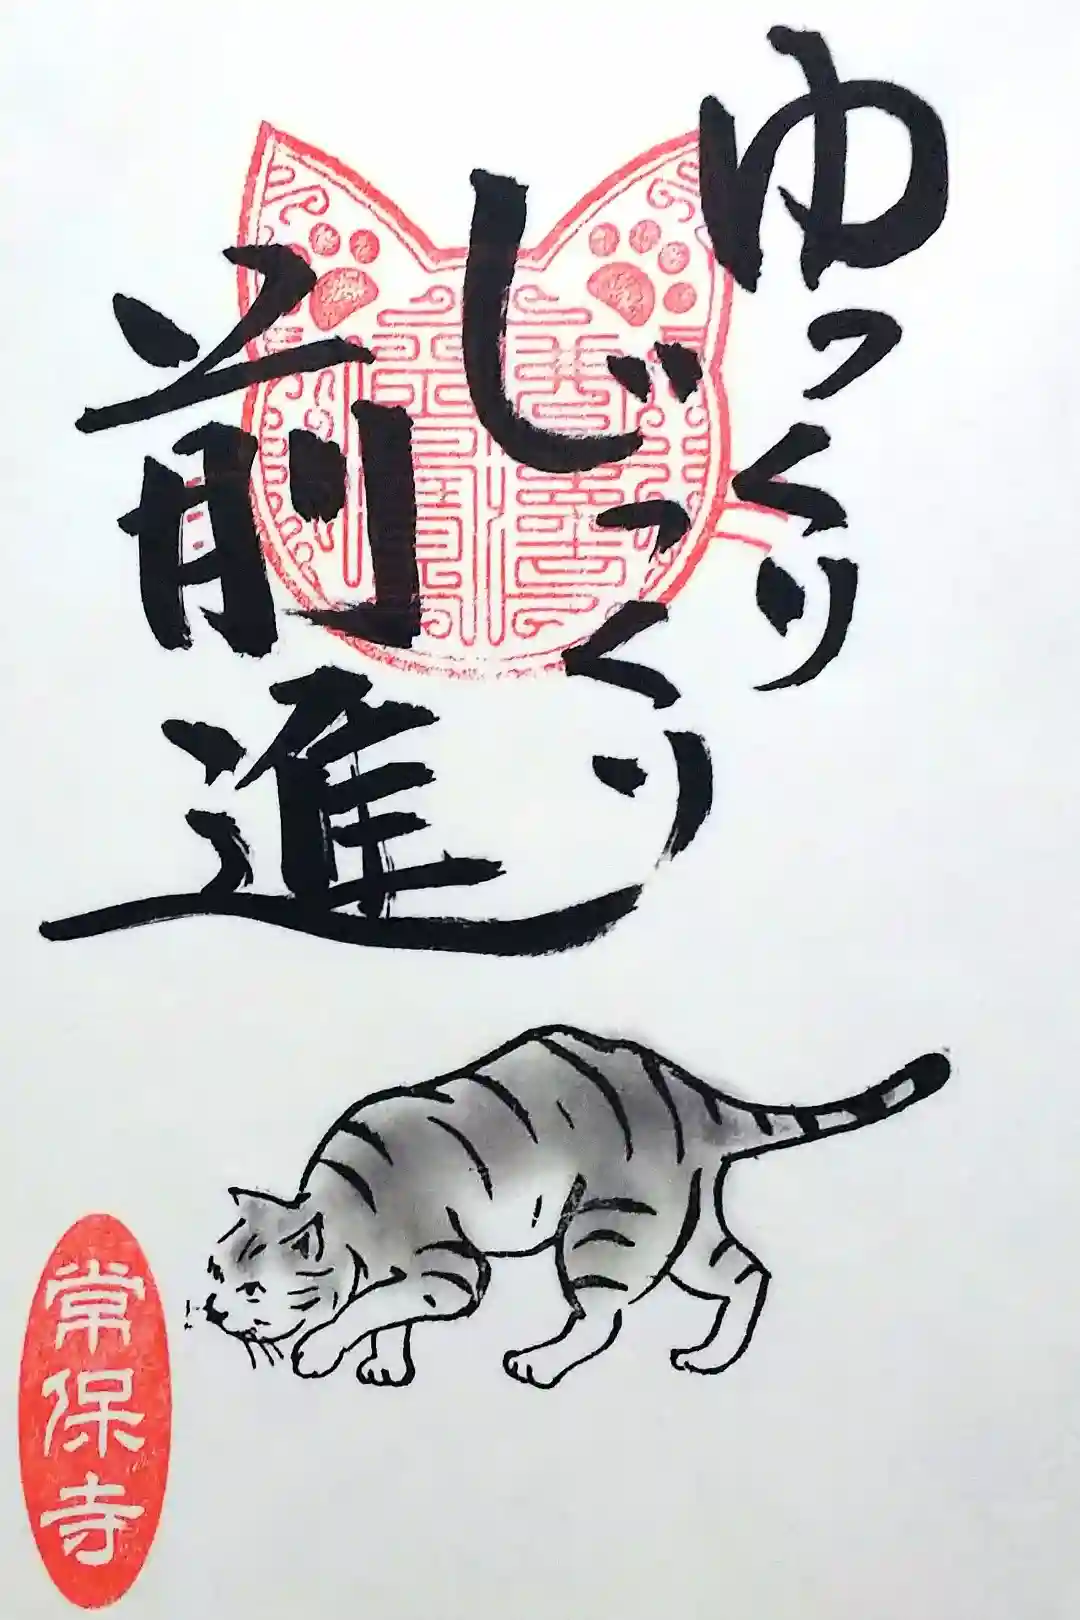 ゆっくり
じっくり
前進
常保寺